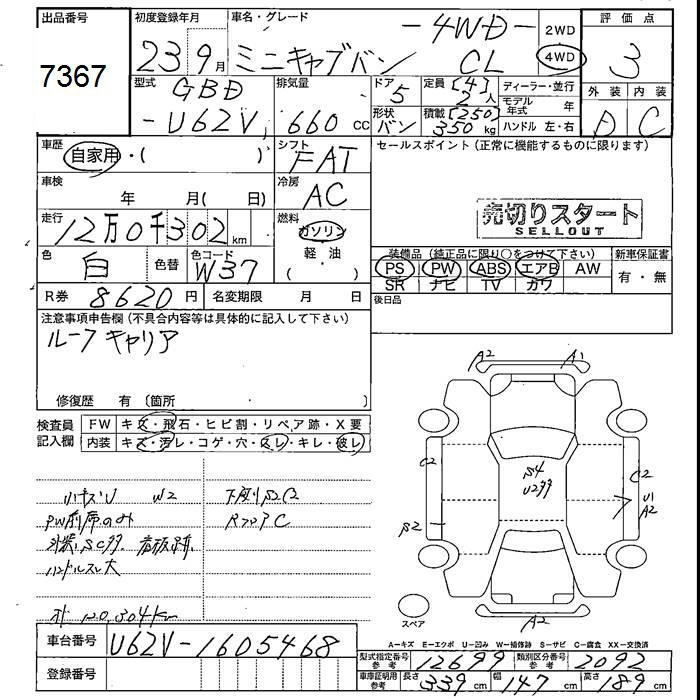 出品番号
7367
初度登録年月
23年9月
車名・グレード
-4WD-
ミニキャブバン CL
2WD
4WD
評価点
3
外装 内装
D C
型式
GBD
-U62V
排気量
660 cc
ドア
5
形状
バン
定員 [4]
2人
積載 [250]
350 kg
ディーラー・並行
モデル年式 年
ハンドル 左・右
車歴
自家用・( )
シフト
FAT
セールスポイント (正常に機能するものに限ります)
車検
年 月( 日)
冷房
AC
売切りスタート
SELLOUT
走行
12万0千302 km
燃料
ガソリン
軽・油
( )
色
白
色替
色コード
W37
装備品 (純正品に限り○をつけて下さい)
PS PW ABS エアB AW
SR ナビ TV カワ
新車保証書
有・無
後日品
R券 8620円
名変期限 月 日
注意事項申告欄 (不具合内容等は具体的に記入して下さい)
ルーフキャリア
修復歴 有 〔箇所 〕
検査員
記入欄
FW キズ・飛石・ヒビ割・リペア跡・X要
内装 キズ・汚レ・コゲ・穴・スレ・キレ・破レ
小キズU W2
下廻りS2C2
PW前席のみ
外装SC多 看板跡
ハンドルスレ大
オド 120,304km
A2 A1
C2
S2
S4
U2多
C2
U1
A2
A2
スペア
A-キズ E-エクボ U-凹み W-補修跡 S-サビ C-腐食 XX-交換済
車台番号 U62V-1605468
登録番号
型式指定番号 参考 12699
類別区分番号 参考 2092
車庫証明用 参考 長さ 339 cm 幅 147 cm 高さ 189 cm